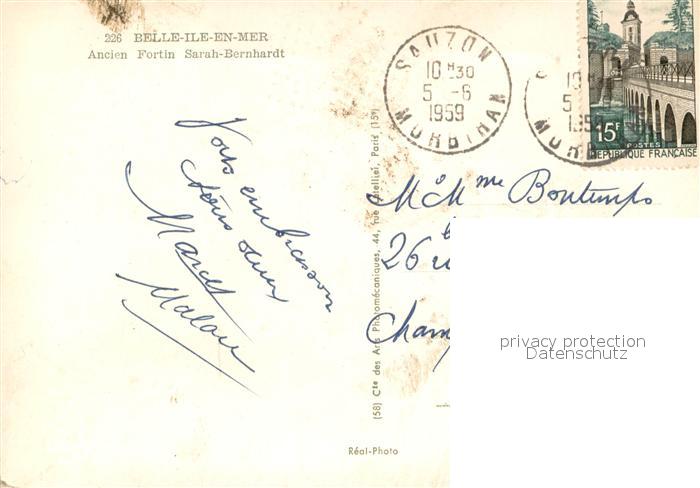 226 BELLE-ILE-EN-MER
Ancien Fortin Sarah-Bernhardt
SAUZON
10 H 30
5 -6
1959
MORBIHAN
15F
POSTES
REPUBLIQUE FRANÇAISE
Vous embrassons
tous deux
Marcel
M. Mme Bontemps
26
Cham
privacy protection
Datenschutz
(58) Cie des Arts Photomécaniques, 44, rue Letellier, Paris (15e)
Réal-Photo